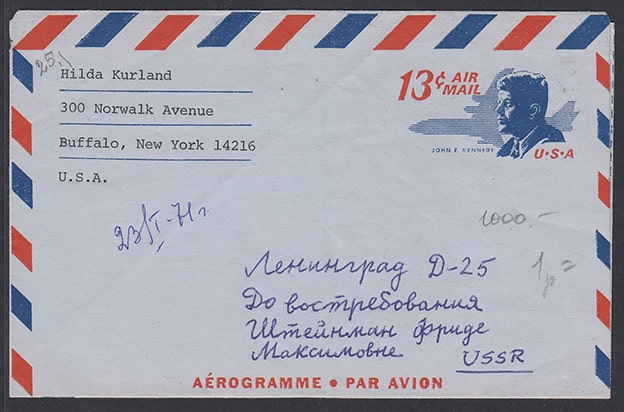 25.
Hilda Kurland
300 Norwalk Avenue
Buffalo, New York 14216
U.S.A.
13¢ AIR MAIL
JOHN F. KENNEDY
U·S·A
23/I-71г.
1000.-
1р=
Ленинград Д-25
До востребования
Штейнман Фриде
Максимовне USSR
AÉROGRAMME • PAR AVION